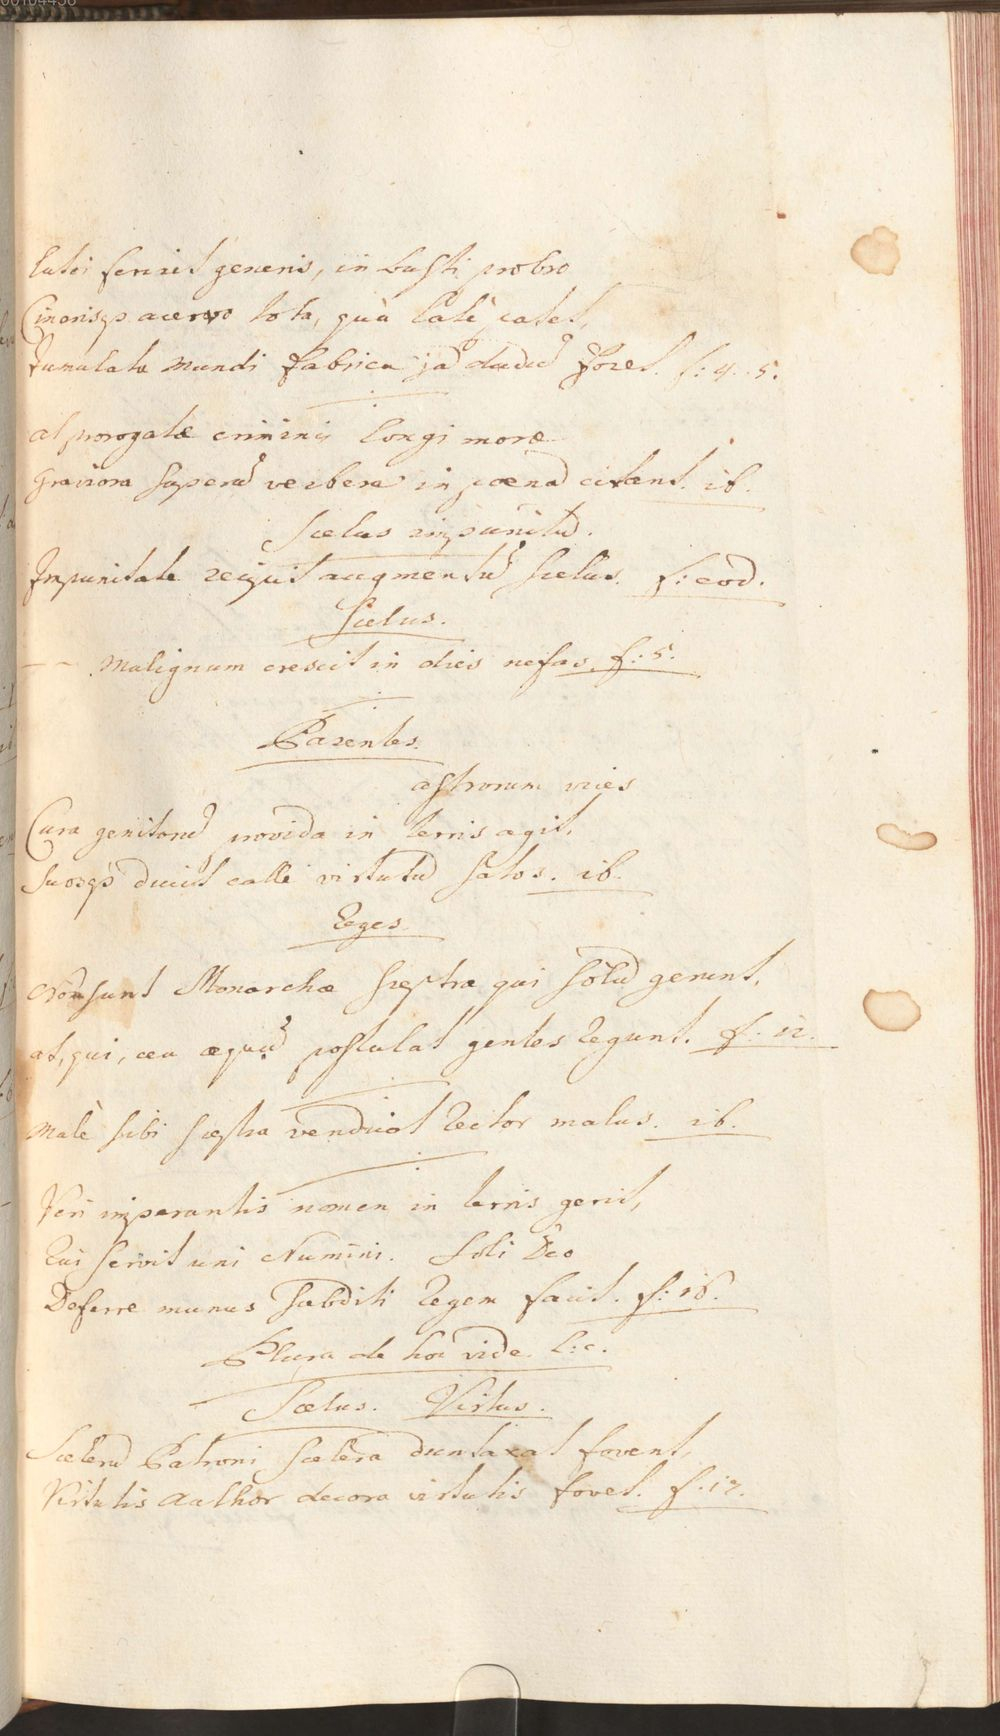 lutei feriret generis, in busti probro
Cinerisqꝫ acervo tota, quà latè patet,
Tumulata mundi fabrica jã dudũ foret. f: 4. 5.
at prorogatæ criminis longi moræ
Graviora superũ verbera in pœnã citant. ib.
Scelus impunitũ.
Impunitate recipit augmentũ scelus. f: eod.
Scelus.
— — Malignum crescit in dies nefas. f: 5.
Parentes.
astrorum vices
Cura genitorũ provida in terris agit,
Suosqꝫ ducit calle virtutũ satos. ib.
Reges.
Non sunt Monarchæ sceptra qui solũ gerunt,
at, qui, ceu æquũ postulat gentes regunt. f: 12.
Malè sibi sceptra vendicat Rector malus. ib.
Veri imperantis nomen in terris gerit,
Qui servit uni Numini. Soli Deo
Deferre munus subditi Regem facit. f: 16.
Plura de hoc vide l: c.
Scelus. Virtus.
Scelerũ Patroni scelera duntaxat fovent,
Virtutis author decora virtutis fovet. f: 17.